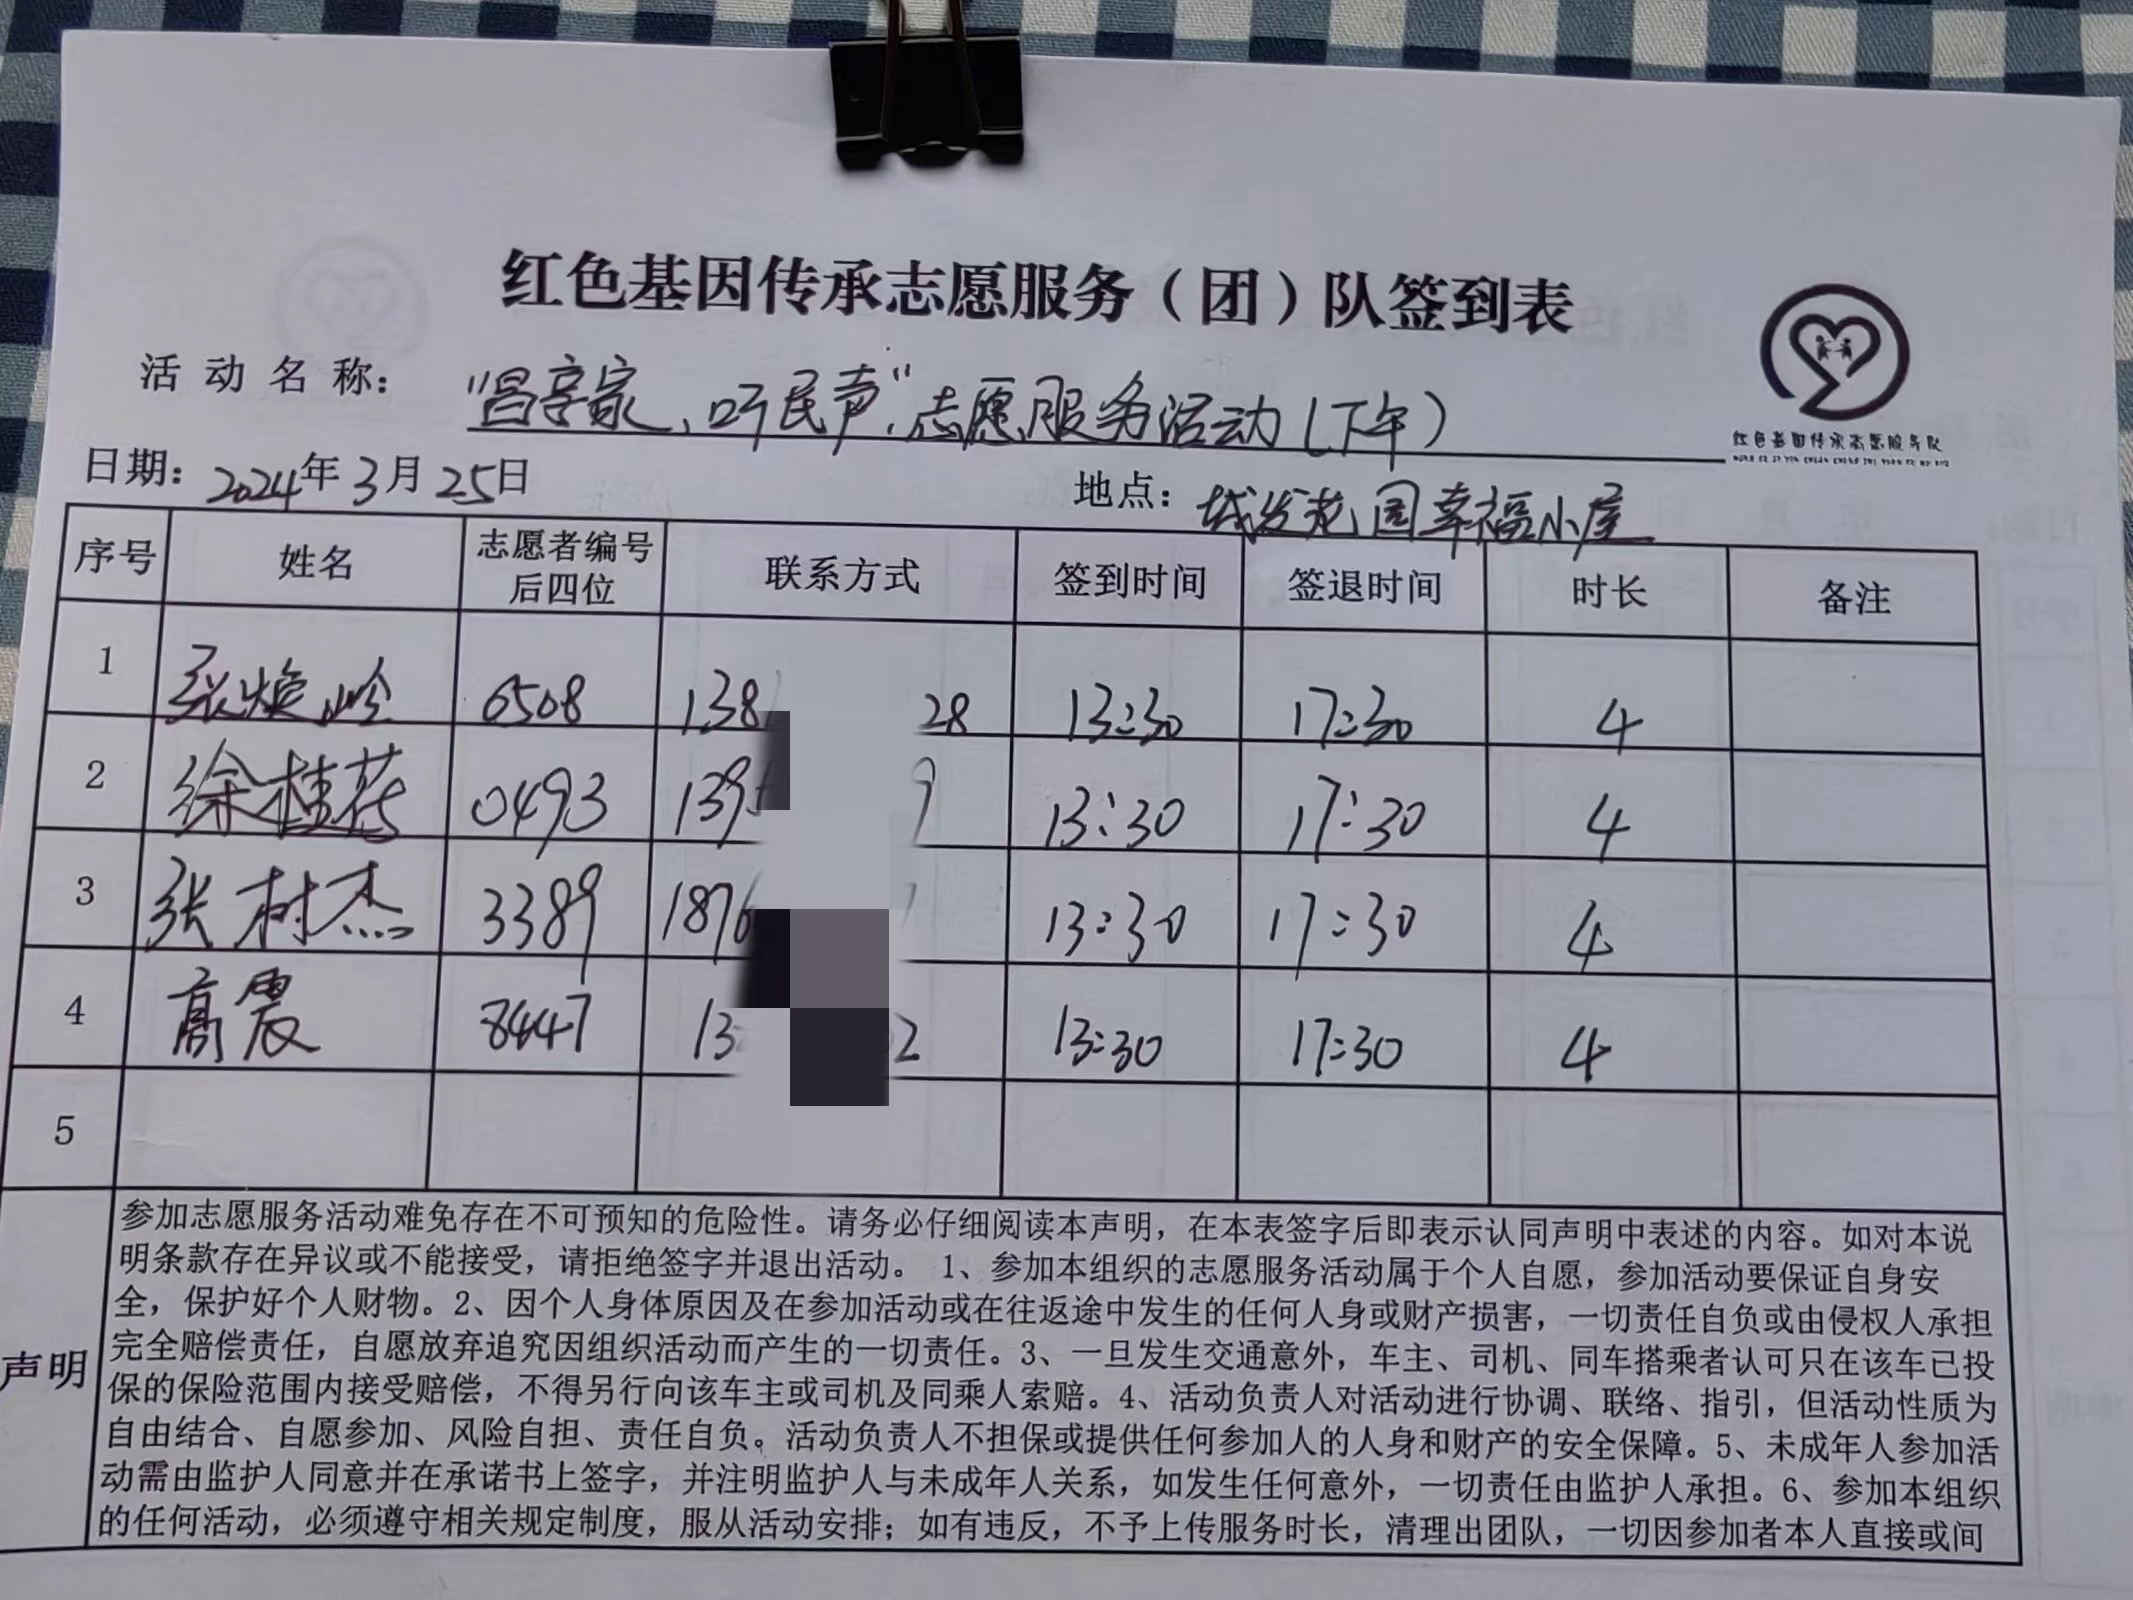 红色基因传承志愿服务（团）队签到表
活动名称：“昌亭家、听民声”志愿服务活动（下午）
红色基因传承志愿服务队
日期：2024年3月25日 地点：城发花园幸福小屋
序号 姓名 志愿者编号后四位 联系方式 签到时间 签退时间 时长 备注
1 张焕岭 6508 138 28 13:30 17:30 4
2 徐桂花 0493 139 9 13:30 17:30 4
3 张树杰 3389 1876 13:30 17:30 4
4 高震 8447 13 2 13:30 17:30 4
5
声明
参加志愿服务活动难免存在不可预知的危险性。请务必仔细阅读本声明，在本表签字后即表示认同声明中表述的内容。如对本说
明条款存在异议或不能接受，请拒绝签字并退出活动。 1、参加本组织的志愿服务活动属于个人自愿，参加活动要保证自身安
全，保护好个人财物。2、因个人身体原因及在参加活动或在往返途中发生的任何人身或财产损害，一切责任自负或由侵权人承担
完全赔偿责任，自愿放弃追究因组织活动而产生的一切责任。3、一旦发生交通意外，车主、司机、同车搭乘者认可只在该车已投
保的保险范围内接受赔偿，不得另行向该车主或司机及同乘人索赔。4、活动负责人对活动进行协调、联络、指引，但活动性质为
自由结合、自愿参加、风险自担、责任自负。活动负责人不担保或提供任何参加人的人身和财产的安全保障。5、未成年人参加活
动需由监护人同意并在承诺书上签字，并注明监护人与未成年人关系，如发生任何意外，一切责任由监护人承担。6、参加本组织
的任何活动，必须遵守相关规定制度，服从活动安排；如有违反，不予上传服务时长，清理出团队，一切因参加者本人直接或间